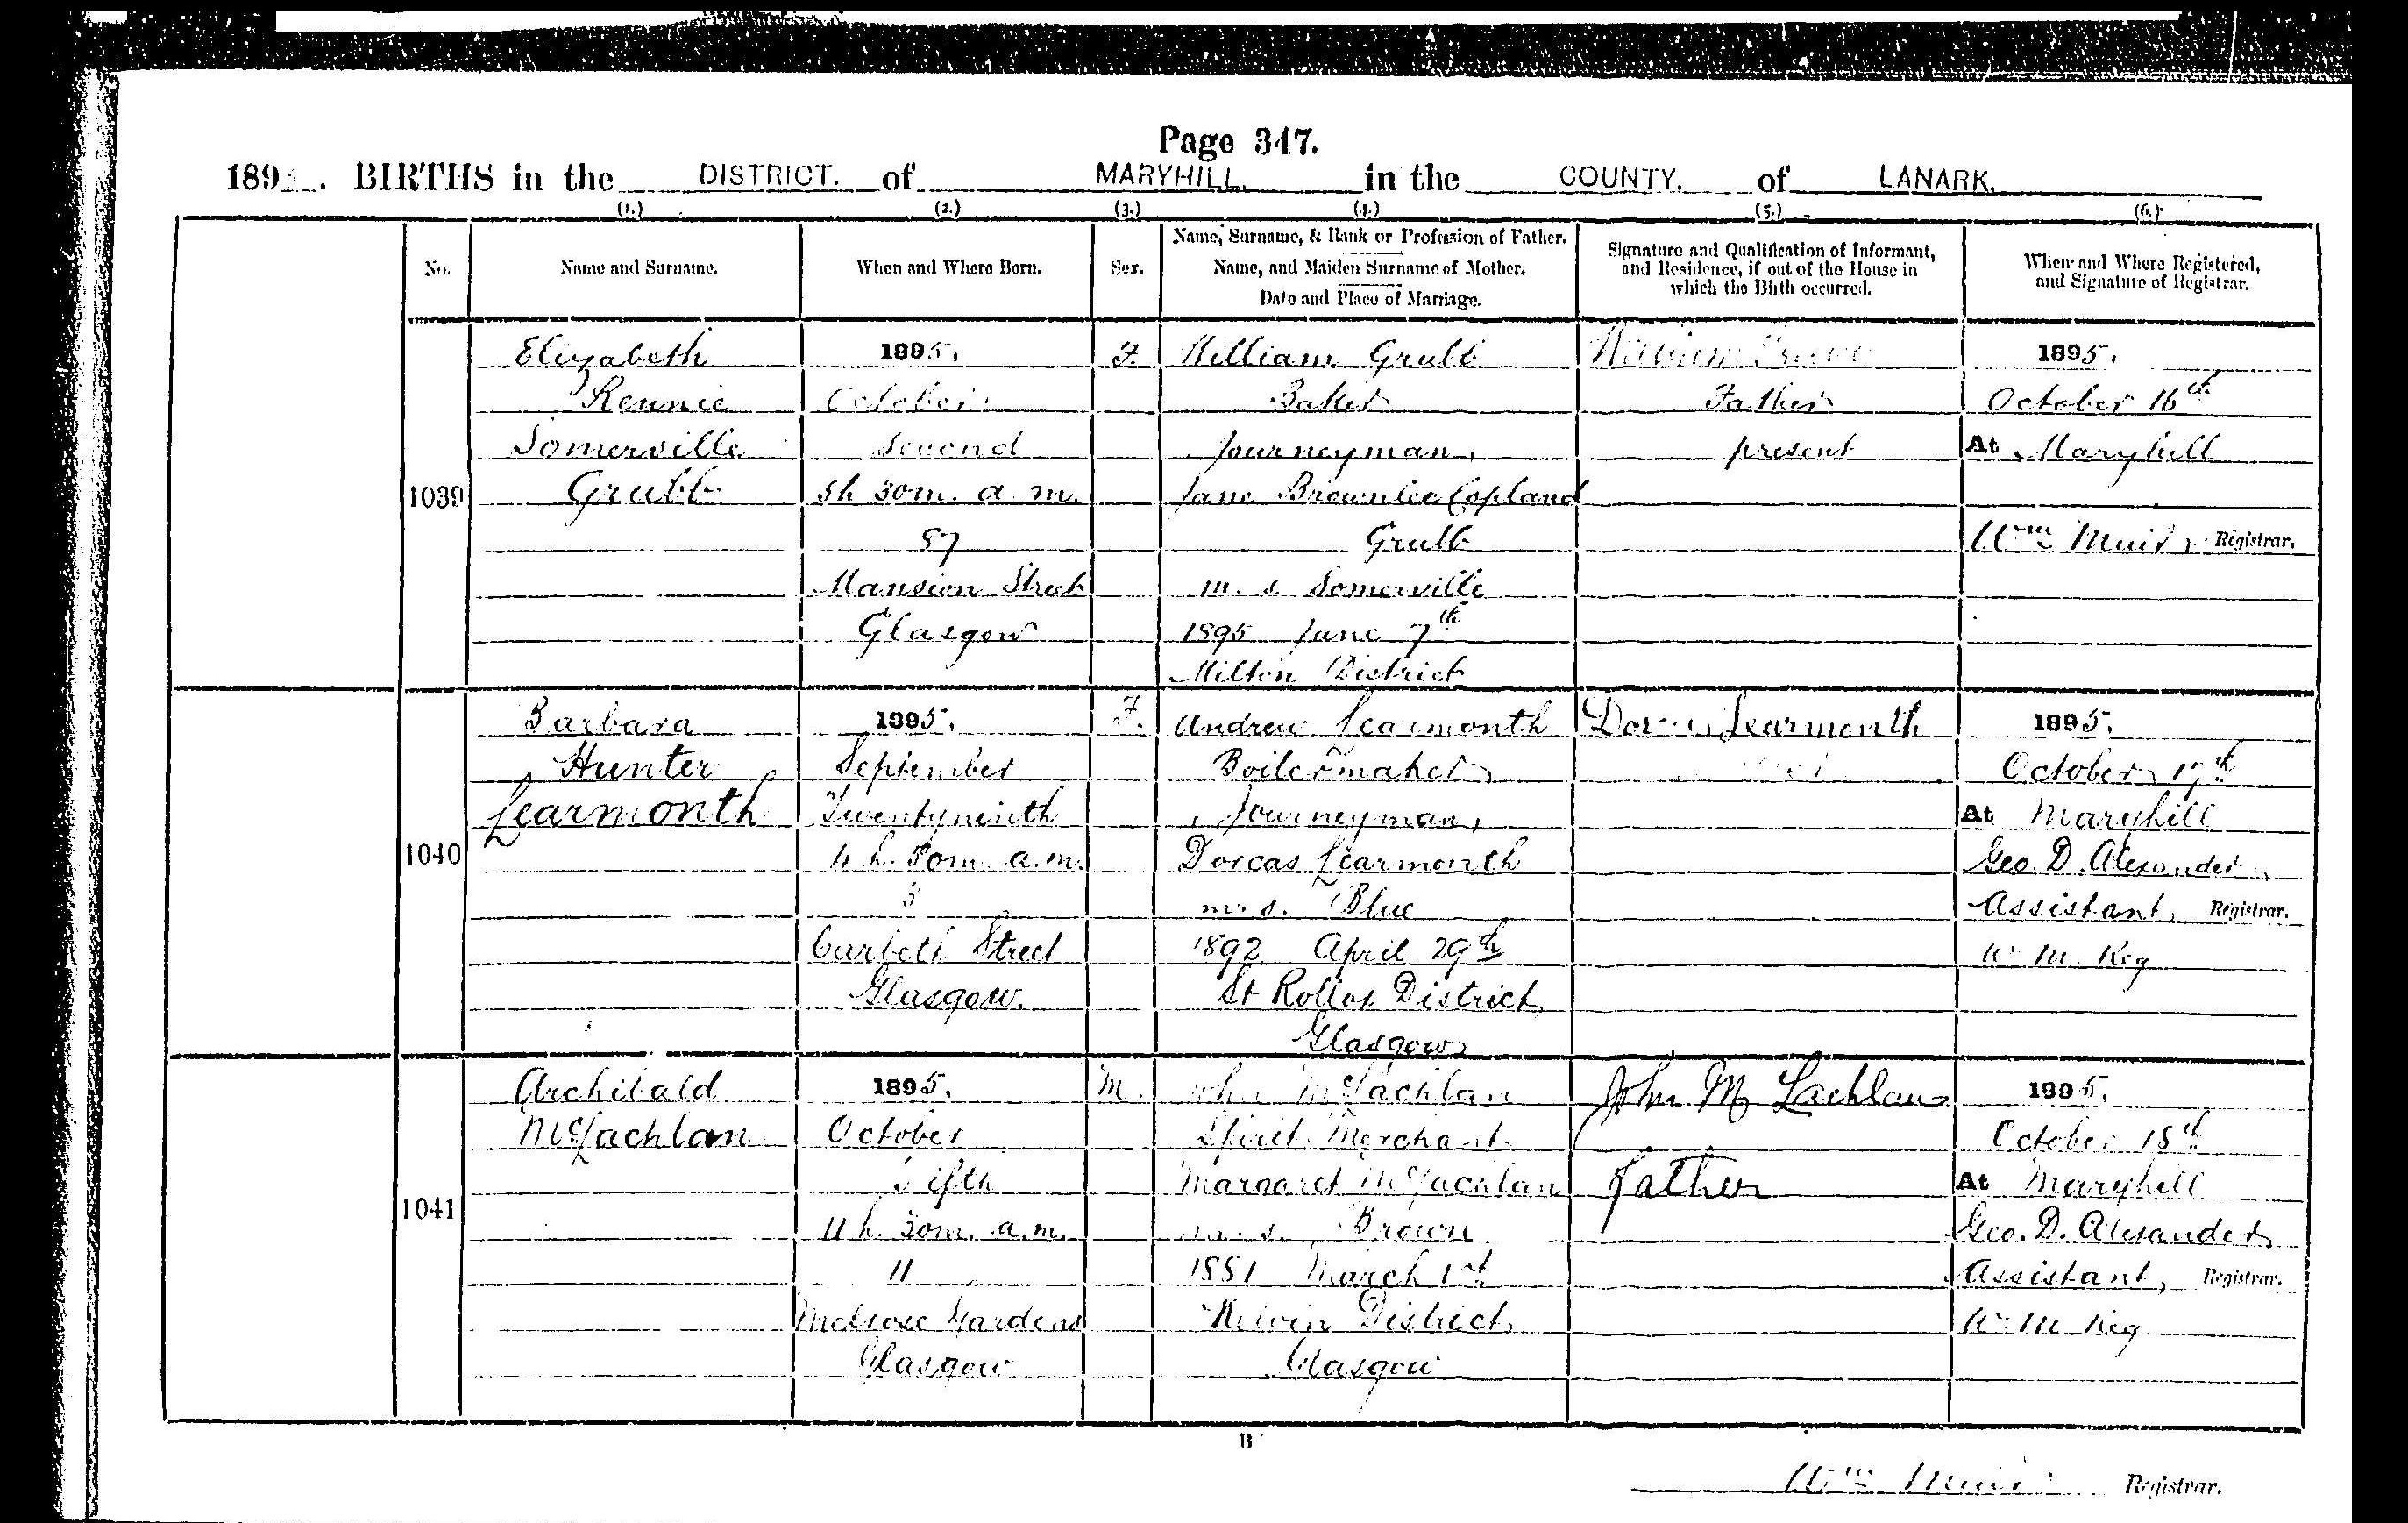 Page 347.
189 . BIRTHS in the DISTRICT. of MARYHILL. in the COUNTY. of LANARK.
(1.) (2.) (3.) (4.) (5.) (6.)
No.
Name and Surname.
When and Where Born.
Sex.
Name, Surname, & Rank or Profession of Father.
Name, and Maiden Surname of Mother.
Date and Place of Marriage.
Signature and Qualification of Informant,
and Residence, if out of the House in
which the Birth occurred.
When and Where Registered,
and Signature of Registrar.
1039
Elizabeth
Rennie
Somerville
Grubb
1895.
October
Second
5h 30m. a.m.
57
Mansion Street
Glasgow
F.
William Grubb
Baker
Journeyman,
Jane Brownlee Copland
Grubb
m. s. Somerville
1895 June 7th
Milton District
William
Father
present
1895.
October 16th
At Maryhill
Wm Muir, Registrar.
1040
Barbara
Hunter
Learmonth
1895.
September
Twentyninth
4 h. 30m. a.m.
Carbeth Street
Glasgow.
F.
Andrew Learmonth
Boilermaker,
Journeyman,
Dorcas Learmonth
m. s. Blue
1892 April 29th
St Rollox District
Glasgow
Learmonth
1895.
October 17th
At Maryhill
Geo. D. Alexander,
Assistant, Registrar.
W. M. Reg
1041
Archibald
McLachlan
1895.
October
Fifth
11 h. 30m. a.m.
11
Melrose Gardens
Glasgow
M.
John McLachlan
Spirit Merchant
Margaret McLachlan
m. s. Brown
1881 March 1st
Kelvin District
Glasgow
John McLachlan
Father
1895.
October 18th
At Maryhill
Geo. D. Alexander,
Assistant, Registrar.
W. M. Reg
B
Wm Muir Registrar.